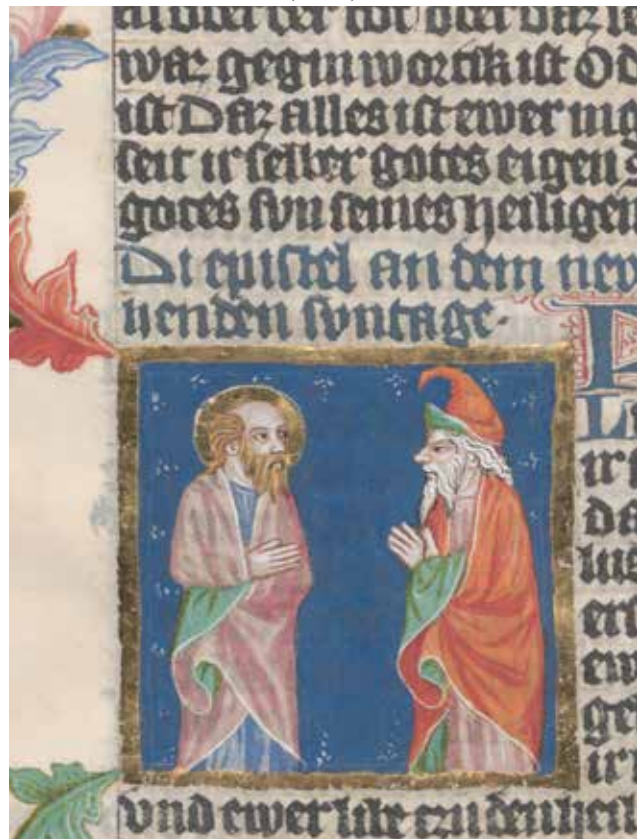 war geginwortik ist Od
ist Daz alles ist ewer
seit ir selber gotes eigen
gotes svn seines heiligen
Di epistel an dem new
henden svntage.
ir
da
lus
ew
ge
ir
vnd ewer libe czu den heil